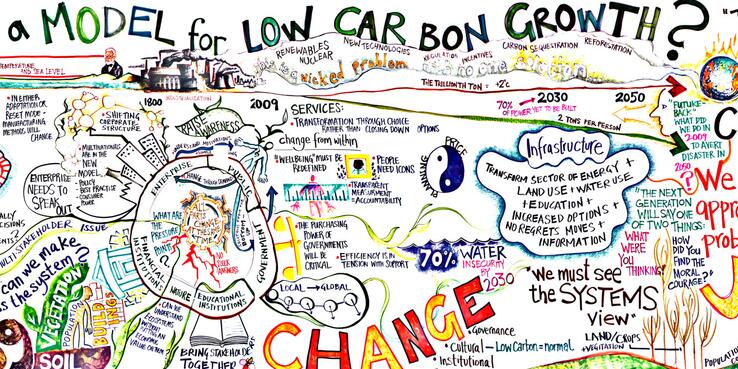 a MODEL for LOW CARBON GROWTH?
RENEWABLES
NUCLEAR
NEW-TECHNOLOGIES
REGULATION INCENTIVES
CARBON SEQUESTRATION
REFORESTATION
wicked problem
TEMPERATURE
AND SEA LEVEL
THE TRILLIONTH TON = +2°C
1800
INDUSTRIALISATION
2009
70% OF POWER YET TO BE BUILT
2030
2050
2 TONS PER PERSON
• IN EITHER
ADAPTATION OR
RESET MODE -
MANUFACTURING
METHODS WILL
CHANGE
• SHIFTING
CORPORATE
STRUCTURE
• MULTINATIONALS
ARE IN THE
NEW
MODEL
• POLICY
• BEST PRACTISE
• CONSUMER
POWER
ENTERPRISE
NEEDS TO
SPEAK
OUT
RAISE
AWARENESS
ENTERPRISE
PUBLIC
GOVERNMENT
EDUCATIONAL
INSTITUTIONS
NATURE
FINANCIAL
INSTITUTIONS
WHAT ARE
THE
PRESSURE
POINTS
CHANGE
TIME
NO
SILVER
ANSWERS
SERVICES:
• TRANSFORMATION THROUGH CHOICE
RATHER THAN CLOSING DOWN OPTIONS
change from within
• "WELLBEING" MUST BE
REDEFINED
PEOPLE
NEED ICONS
• TRANSPARENT
MEASUREMENT
+ ACCOUNTABILITY
PRICE
PLANET
• THE PURCHASING
POWER OF
GOVERNMENTS
WILL BE
CRITICAL
• EFFICIENCY IS IN
TENSION WITH SUPPORT
LOCAL → GLOBAL
70% WATER
INSECURITY
BY
2030
Infrastructure
TRANSFORM SECTOR OF ENERGY +
LAND USE + WATER USE
+ EDUCATION +
INCREASED OPTIONS +
NO REGRETS MOVES +
INFORMATION
"FUTURE
BACK"
WHAT DID
WE DO IN
2009
TO AVERT
DISASTER IN
2050
?
"THE NEXT
GENERATION
WILL SAY ONE
OF TWO THINGS:
WHAT
WERE
YOU
THINKING?
HOW
DID YOU
FIND THE
MORAL
COURAGE?
We
appro
prob
"We must see
the SYSTEMS
View"
LAND/CROPS
+ VEGETATION
MULTI STAKEHOLDER ISSUE
can we make
the system?
VEGETATION
POPULATION
BUILDINGS
SOIL
• CAN WE
UNDERSTAND
ECOSYSTEMS
WITHOUT
PUTTING AN
ECONOMIC
VALUE ON THEM
BRING STAKEHOLDERS
TOGETHER
CHANGE
• Governance
• Cultural — Low Carbon = normal
• Institutional